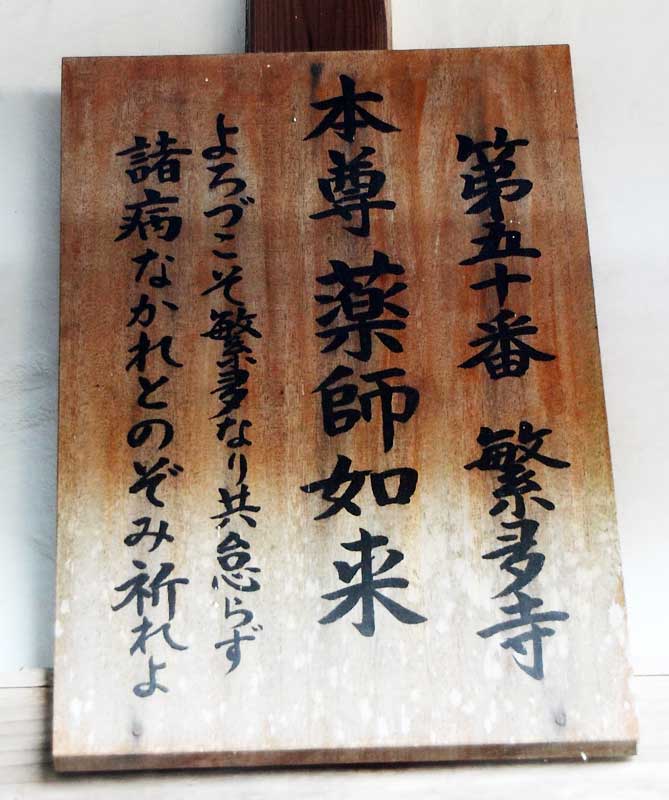 第五十番 繁多寺
本尊薬師如来
よろづこそ繁多なり共怠らず
諸病なかれとのぞみ祈れよ